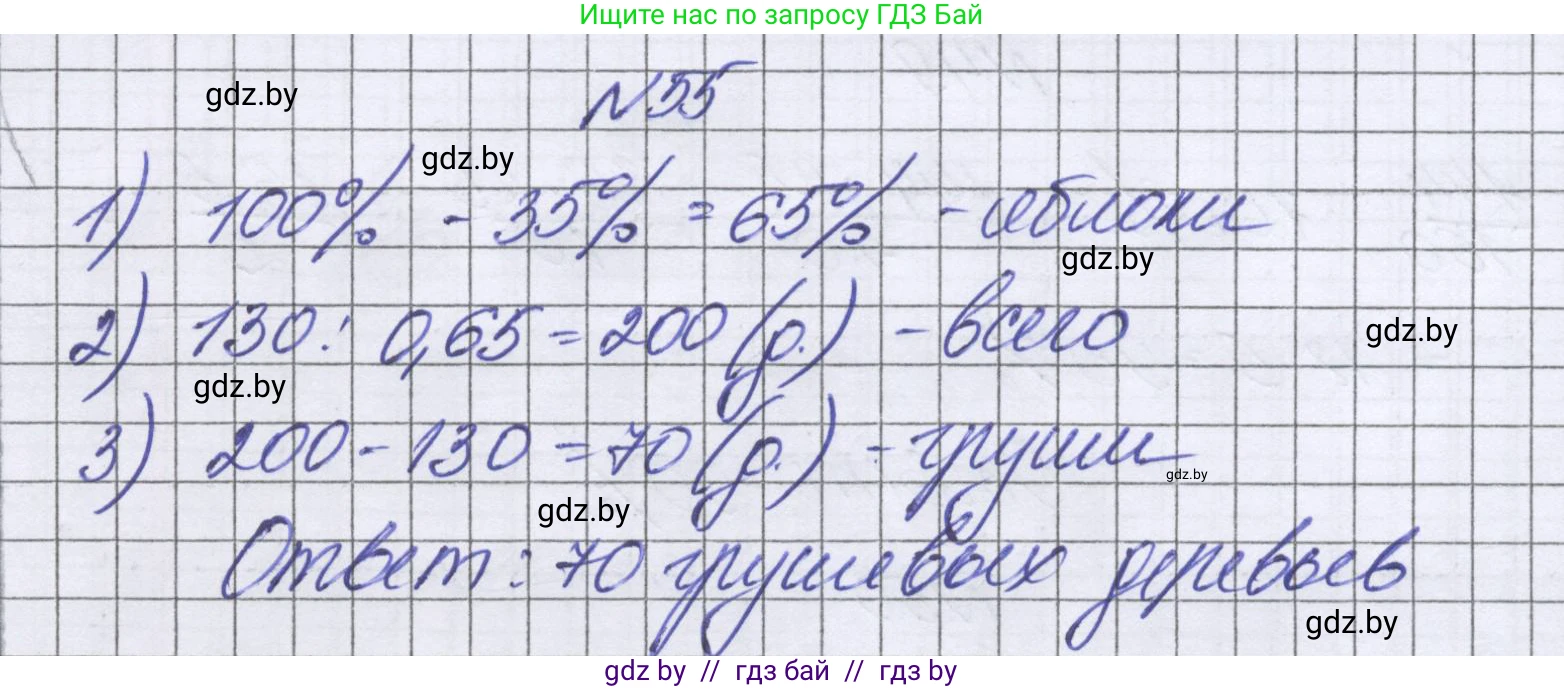 Ищите нас по запросу ГДЗ Бай
gdz.by
N55
gdz.by
1) 100% - 35% = 65% - яблоки
gdz.by
2) 130 : 0,65 = 200 (д.) - всего
gdz.by
gdz.by
3) 200 - 130 = 70 (д.) - груши
gdz.by
gdz.by
Ответ: 70 грушевых деревьев
gdz.by
gdz by // гдз бай // гдз by